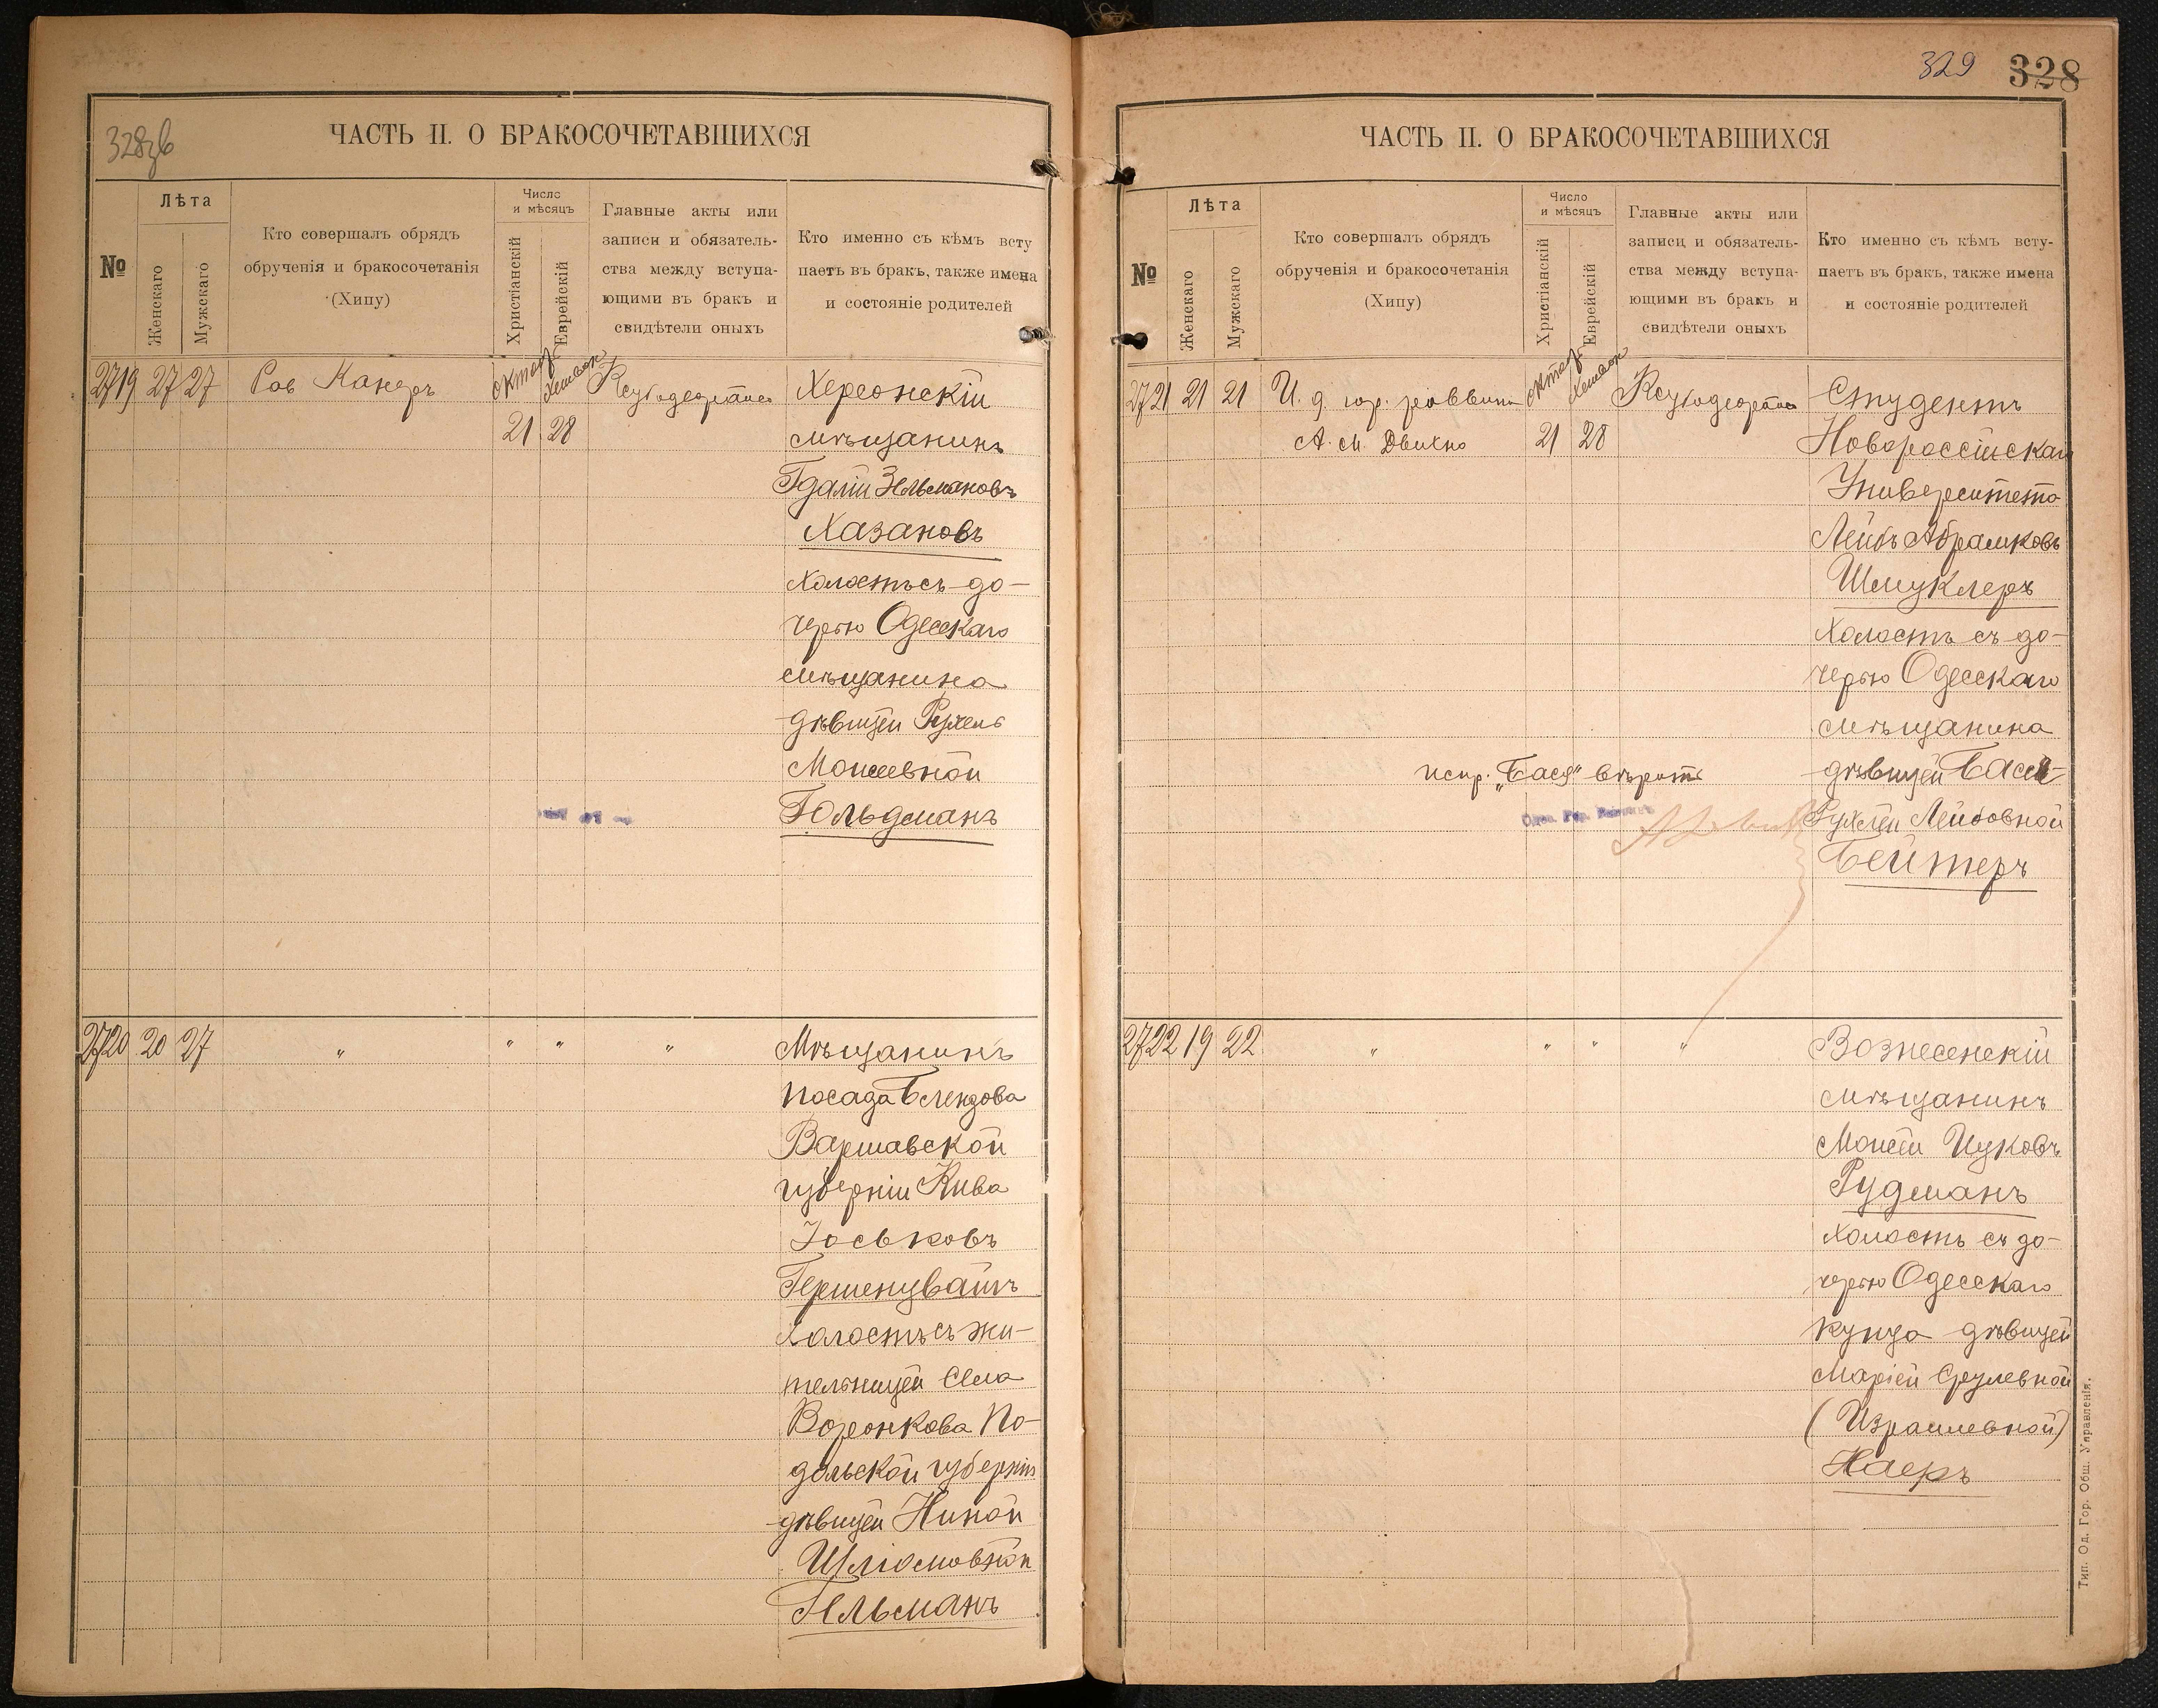 328зв
ЧАСТЬ II. О БРАКОСОЧЕТАВШИХСЯ
№
Лѣта
Женскаго
Мужскаго
Кто совершалъ обрядъ
обрученія и бракосочетанія
(Хипу)
Число
и мѣсяцъ
Христіанскій
Еврейскій
Главные акты или
записи и обязатель-
ства между вступа-
ющими въ бракъ и
свидѣтели оныхъ
Кто именно съ кѣмъ всту
паетъ въ бракъ, также имена
и состояніе родителей
2719 27 27 Рав Канеръ октяб Хешвон Херсонскій
21 28 мѣщанинъ
Гдалій Зельмановъ
Хазановъ
холостъ съ до-
черью Одесскаго
мѣщанина
дѣвицей Рухель
Моисеевной
Гольдманъ
2720 20 27 " " " " Мѣщанинъ
посада Блендова
Варшавской
губерніи Кива
Іоськовъ
Гершенувайгъ
холостъ съ жи-
тельницей села
Воронкова По-
дольской губерніи
дѣвицей Нихой
Шліомовной
Гельманъ
329 328
ЧАСТЬ II. О БРАКОСОЧЕТАВШИХСЯ
№
Лѣта
Женскаго
Мужскаго
Кто совершалъ обрядъ
обрученія и бракосочетанія
(Хипу)
Число
и мѣсяцъ
Христіанскій
Еврейскій
Главные акты или
записи и обязатель-
ства между вступа-
ющими въ бракъ и
свидѣтели оныхъ
Кто именно съ кѣмъ всту-
паетъ въ бракъ, также имена
и состояніе родителей
2721 21 21 И. д. гор. раввина октяб Хешвон Студентъ
А. М. Двихно 21 28 Новороссійскаго
Университета
Лейбъ Абрамковъ
Шмуклеръ
холостъ съ до-
черью Одесскаго
мѣщанина
испр. "Бася" вѣрить дѣвицей Бася-
Рухлей Лейбовной
Бейтеръ
2722 19 22 " " " " Вознесенскій
мѣщанинъ
Моисей Ицковъ
Рудманъ
холостъ съ до-
черью Одесскаго
купца дѣвицей
Маріей Срулевной
(Израилевной)
Наеръ
Тип. Од. Гор. Общ. Управленія.